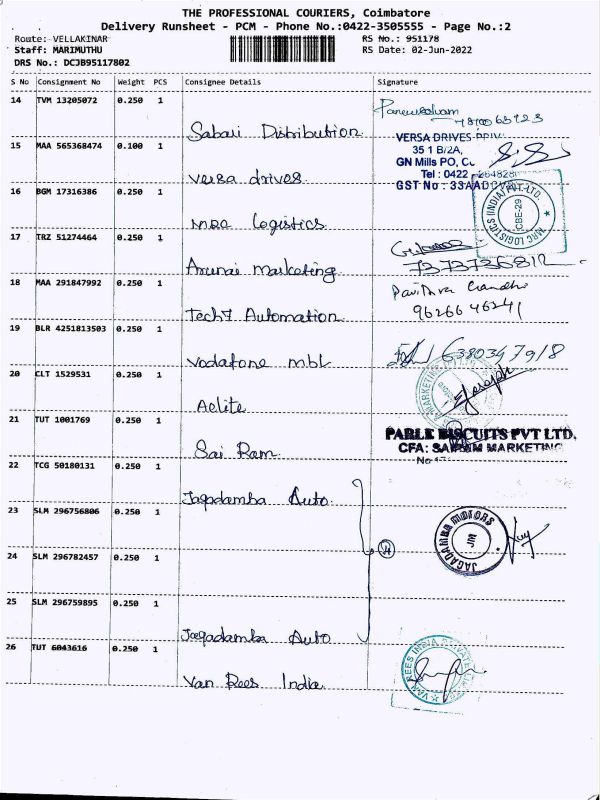 THE PROFESSIONAL COURIERS, Coimbatore
Delivery Runsheet - PCM - Phone No.:0422-3505555 - Page No.:2
Route: VELLAKINAR
Staff: MARIMUTHU
DRS No.: DCJB95117802
RS No.: 951178
RS Date: 02-Jun-2022
S No Consignment No Weight PCS Consignee Details Signature
14 TVM 13205072 0.250 1 Sabari Distribution
15 MAA 565368474 0.100 1 Versa drives
VERSA DRIVES
35 1 B/2A,
GN Mills PO,
Tel : 0422
GST No : 33AAD
16 BGM 17316386 0.250 1 MRC Logistics
MRC LOGISTICS (INDIA) PVT. LTD.
CBE-29
17 TRZ 51274464 0.250 1 Arunai Marketing
7373736812
18 MAA 291847992 0.250 1 Tech7 Automation
Pavithra Chandra
9626646241
19 BLR 4251813503 0.250 1 Vodafone mbl
6380347918
20 CLT 1529531 0.250 1 Aclite
Joseph
21 TUT 1001769 0.250 1 Sai Ram
PARLE BISCUITS PVT LTD.
CFA: SAIRAM MARKETING
22 TCG 50180131 0.250 1 Jagadamba Auto
23 SLM 296756806 0.250 1
4
JAGADAMBA MOTORS
JM
24 SLM 296782457 0.250 1
25 SLM 296759895 0.250 1 Jagadamba Auto
26 TUT 6043616 0.250 1 Van Rees India
VAN REES INDIA PRIVATE LIMITED